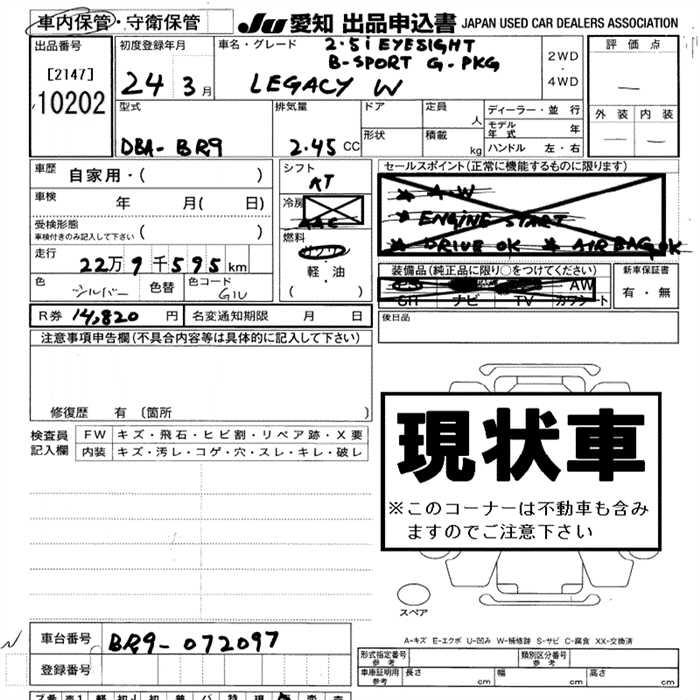 車内保管・守衛保管 JU 愛知 出品申込書 JAPAN USED CAR DEALERS ASSOCIATION
出品番号 初度登録年月 車名・グレード 2.5i EYESIGHT
[2147] B-SPORT G-PKG
10202 24 3月 LEGACY W
2WD
・
4WD
評価点
—
外装 内装
— —
型式 排気量 ドア 定員 人 ディーラー・並行
モデル年式 年
DBA-BR9 2.45 CC 形状 積載 kg ハンドル 左・右
車歴 自家用・( )
車検 年 月( 日)
受検形態
車検付きのみ記入して下さい ( )
走行 22万9千595km
色 シルバー 色替 色コード G1U
シフト
AT
冷房
AAC
燃料
ガソリン
軽・油
( )
セールスポイント(正常に機能するものに限ります)
★ A-W
★ ENGINE START
★ DRIVE OK ★ AIRBAG OK
装備品(純正品に限り○をつけてください) 新車保証書
AW 有・無
SH ナビ TV カワシート
R券 14,820 円 名変通知期限 月 日
後日品
注意事項申告欄(不具合内容等は具体的に記入して下さい)
修復歴 有 〔箇所 〕
検査員 FW キズ・飛石・ヒビ割・リペア跡・X要
記入欄 内装 キズ・汚レ・コゲ・穴・スレ・キレ・破レ
現状車
※このコーナーは不動車も含み
ますのでご注意下さい
スペア
A-キズ E-エクボ U-凹み W-補修跡 S-サビ C-腐食 XX-交換済
車台番号 BR9-072097
登録番号
形式指定番号 参考 類別区分番号 参考
車庫証明用 参考 長さ cm 幅 cm 高さ cm